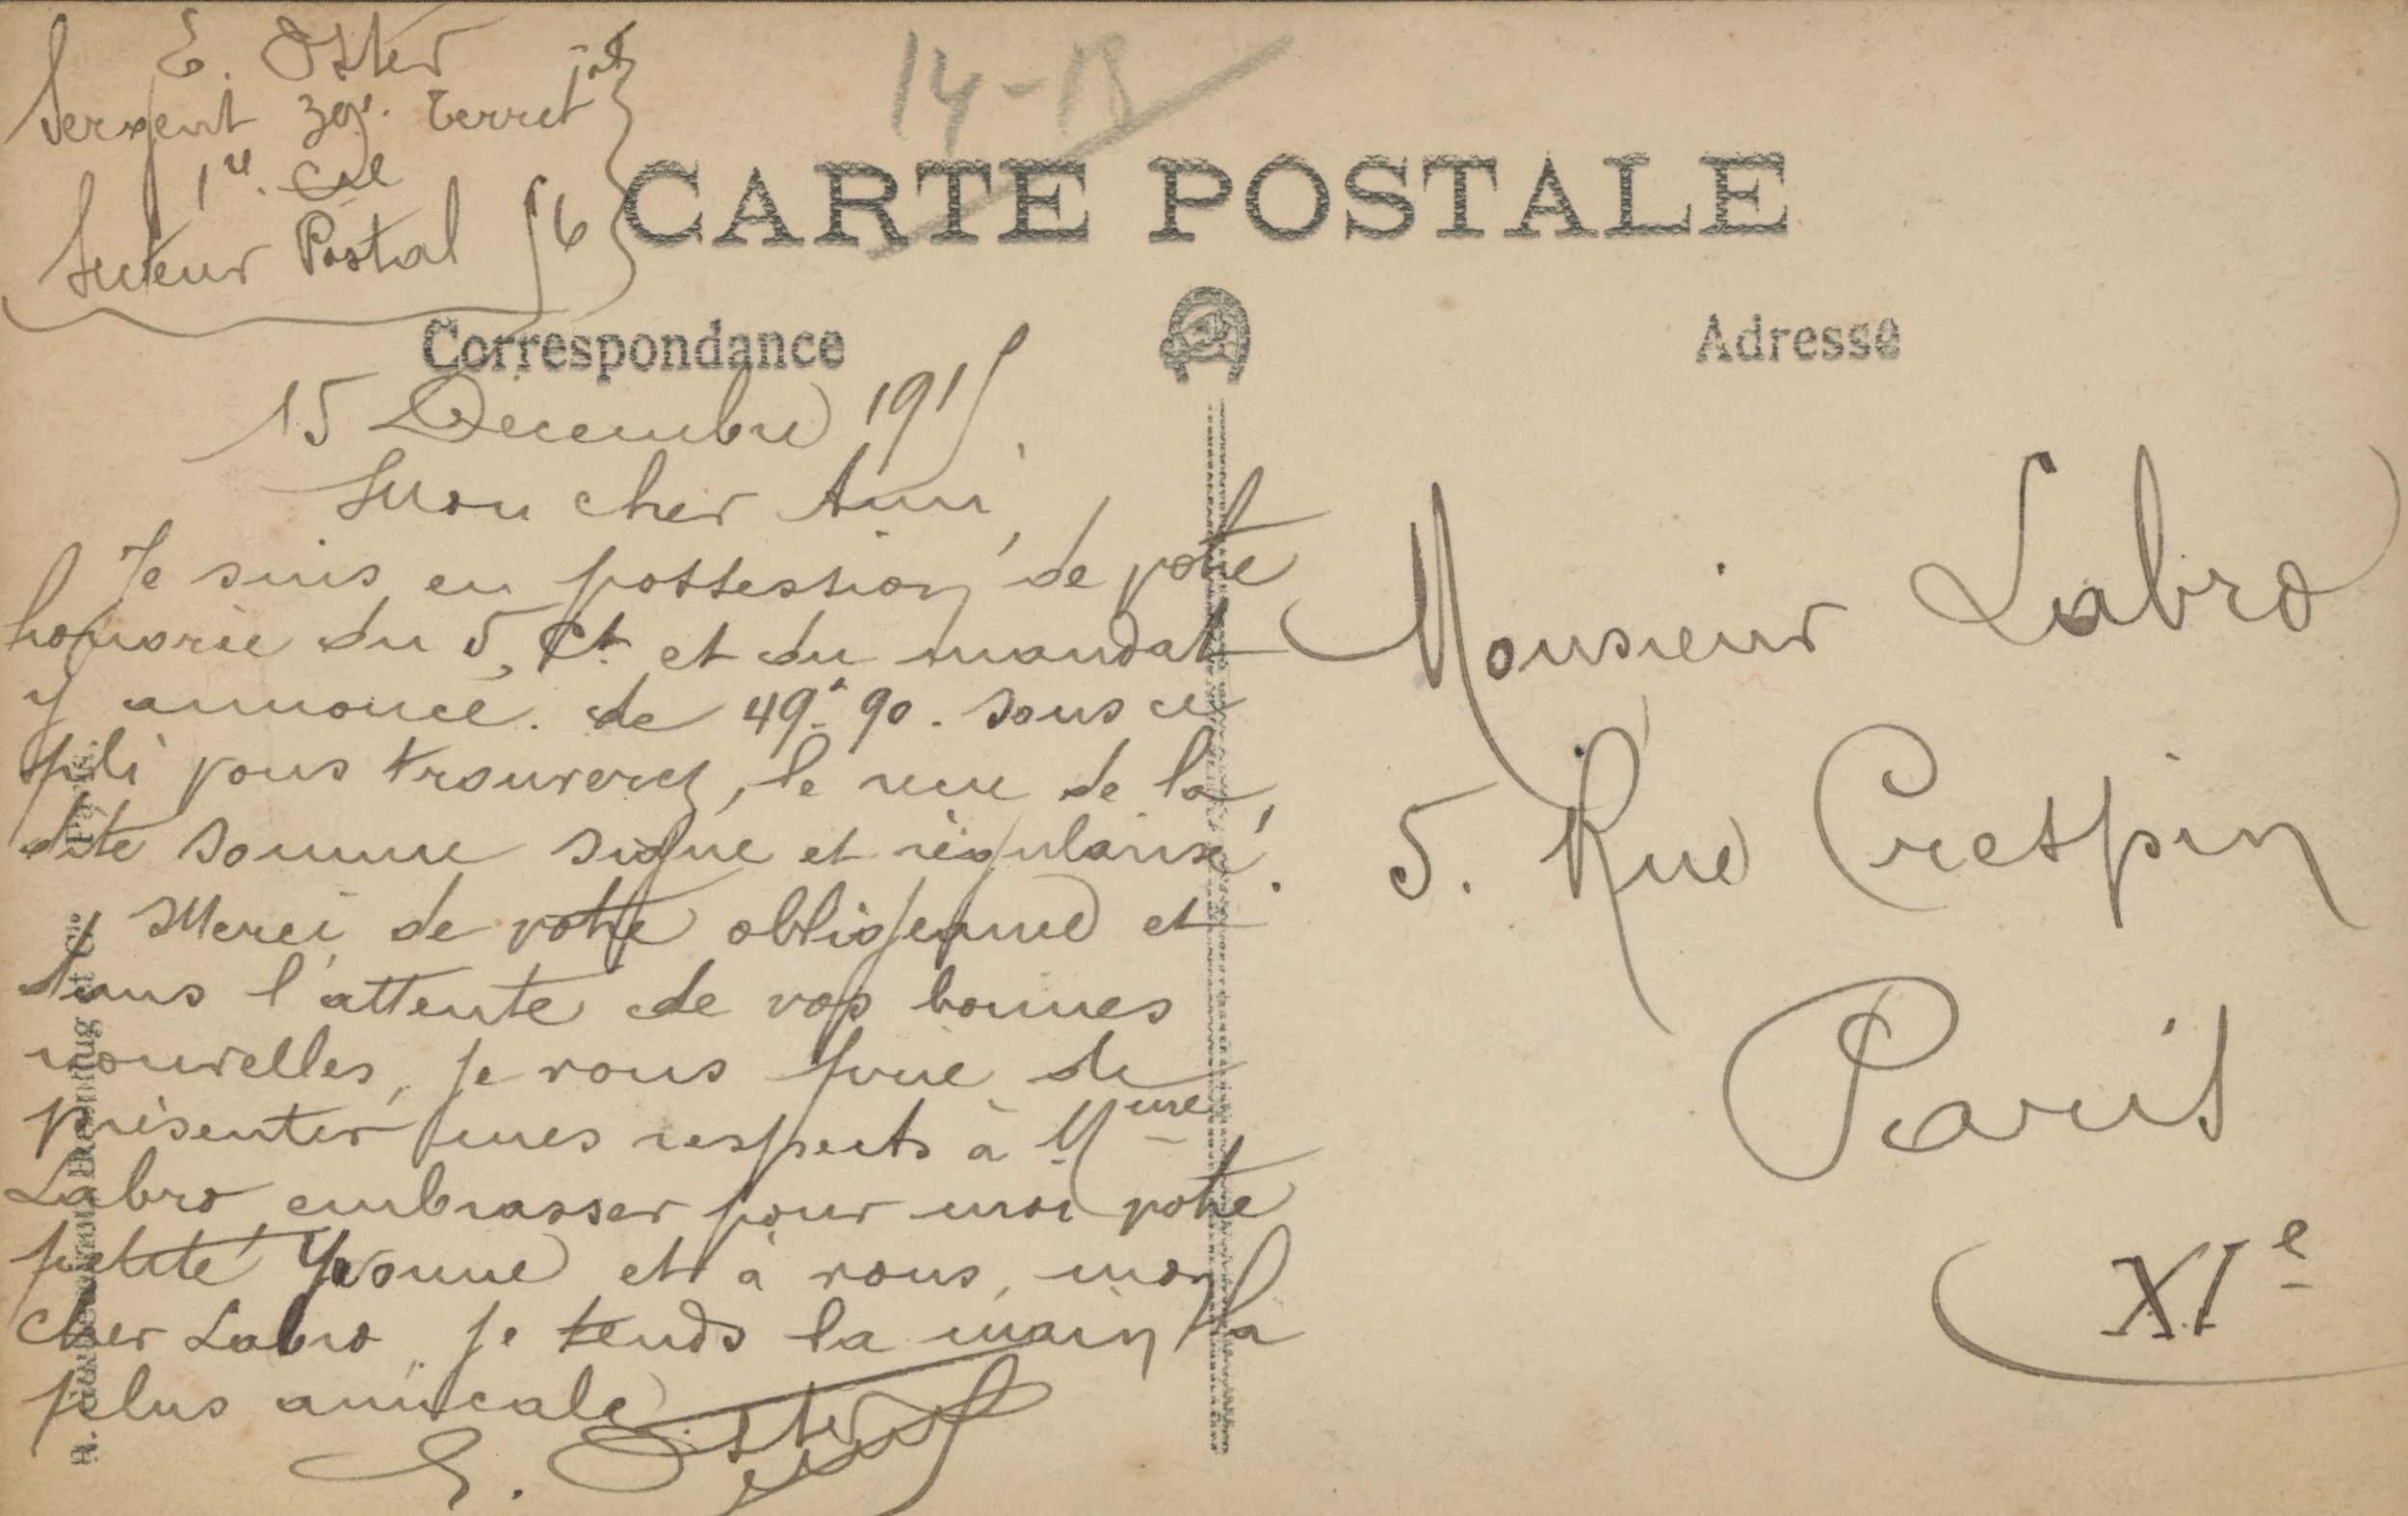 E. Oster
Sergent 39e. Territ
1re. Cie
Secteur Postal 56
14-18
CARTE POSTALE
Correspondance
Adresse
15 Decembre 1915.
Mon cher Ami,
Je suis en possession de votre
honorée du 5, Ct. et du mandat
y annoncé. de 49f 90. Sous ce
pli vous trouverez, le recu de la
dite somme signé et régularisé.
Merci de votre obligeance et
dans l'attente de vos bonnes
nouvelles, je vous prie de
présenter mes respects à Mme
Labro embrasser pour moi votre
petite Yvonne et à vous, mon
cher Labro je tends la main la
plus amicale
E. Oster
Monsieur Labro
5. Rue Crespin
Paris
XIe